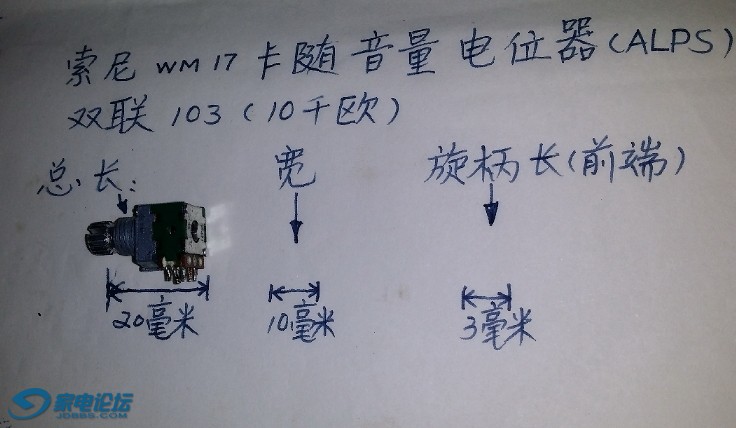 索尼 WM 17 卡随 音量 电位器(ALPS)
双联 103 (10千欧)
总长: 宽 旋柄长(前端)
20毫米 10毫米 3毫米
家电论坛
JDBBS.COM